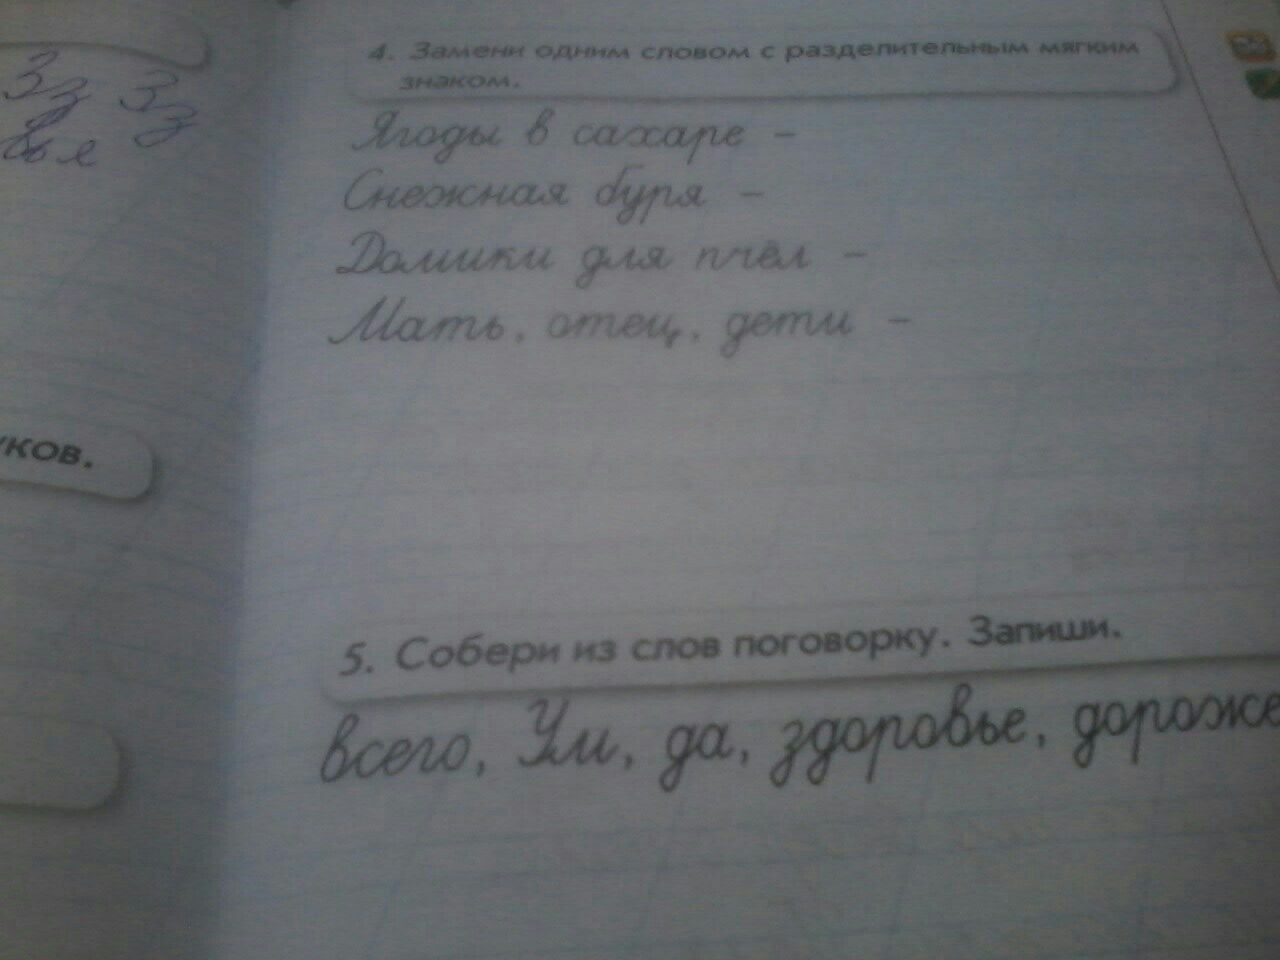 Зз Зз
ья
4. Замени одним словом с разделительным мягким
знаком.
Ягоды в сахаре -
Снежная буря -
Домики для пчёл -
Мать, отец, дети -
уков.
5. Собери из слов поговорку. Запиши.
всего, Ум, да, здоровье, дороже